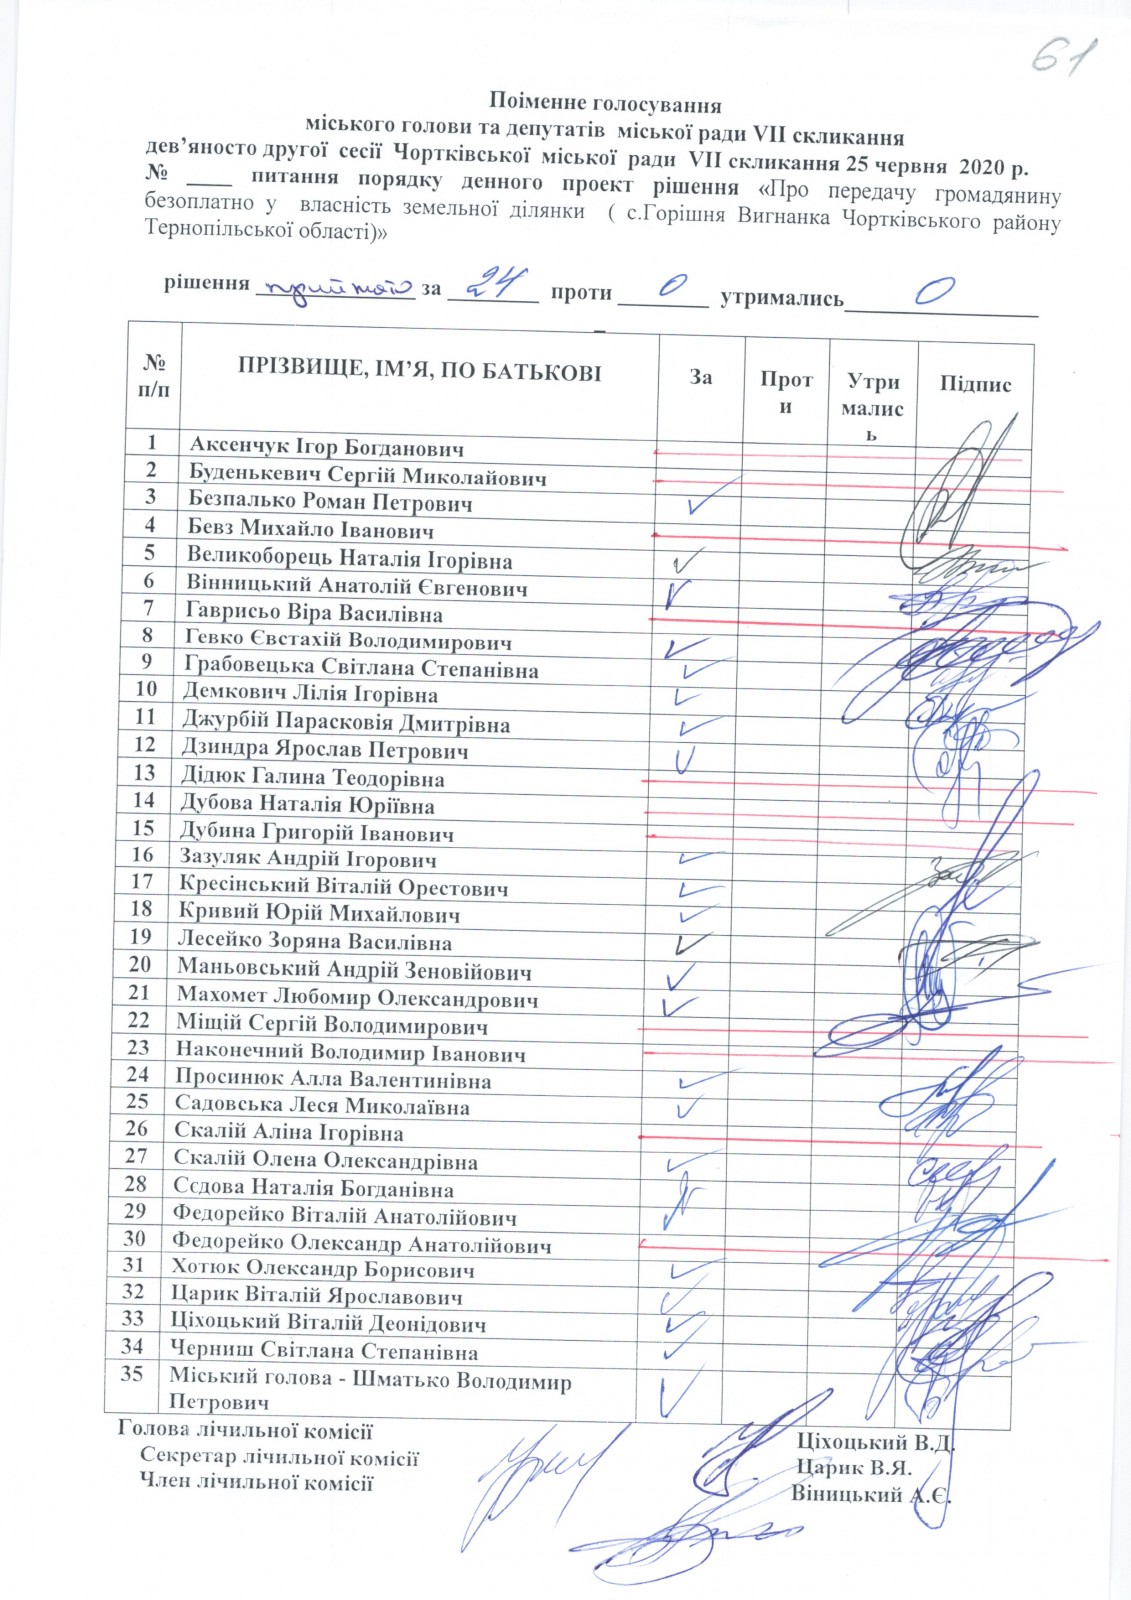 61
Поіменне голосування
міського голови та депутатів міської ради VII скликання
дев’яносто другої сесії Чортківської міської ради VII скликання 25 червня 2020 р.
№ ____ питання порядку денного проект рішення «Про передачу громадянину
безоплатно у власність земельної ділянки ( с.Горішня Вигнанка Чортківського району
Тернопільської області)»
рішення прийнято за 24 проти 0 утримались 0
№ п/п ПРІЗВИЩЕ, ІМ’Я, ПО БАТЬКОВІ За Проти Утримались Підпис
1 Аксенчук Ігор Богданович
2 Буденькевич Сергій Миколайович
3 Безпалько Роман Петрович
4 Бевз Михайло Іванович
5 Великоборець Наталія Ігорівна
6 Вінницький Анатолій Євгенович
7 Гаврисьо Віра Василівна
8 Гевко Євстахій Володимирович
9 Грабовецька Світлана Степанівна
10 Демкович Лілія Ігорівна
11 Джурбій Парасковія Дмитрівна
12 Дзиндра Ярослав Петрович
13 Дідюк Галина Теодорівна
14 Дубова Наталія Юріївна
15 Дубина Григорій Іванович
16 Зазуляк Андрій Ігорович
17 Кресінський Віталій Орестович
18 Кривий Юрій Михайлович
19 Лесейко Зоряна Василівна
20 Маньовський Андрій Зеновійович
21 Махомет Любомир Олександрович
22 Міщій Сергій Володимирович
23 Наконечний Володимир Іванович
24 Просинюк Алла Валентинівна
25 Садовська Леся Миколаївна
26 Скалій Аліна Ігорівна
27 Скалій Олена Олександрівна
28 Сєдова Наталія Богданівна
29 Федорейко Віталій Анатолійович
30 Федорейко Олександр Анатолійович
31 Хотюк Олександр Борисович
32 Царик Віталій Ярославович
33 Ціхоцький Віталій Деонідович
34 Черниш Світлана Степанівна
35 Міський голова - Шматько Володимир
Петрович
Голова лічильної комісії Ціхоцький В.Д.
Секретар лічильної комісії Царик В.Я.
Член лічильної комісії Віницький А.Є.